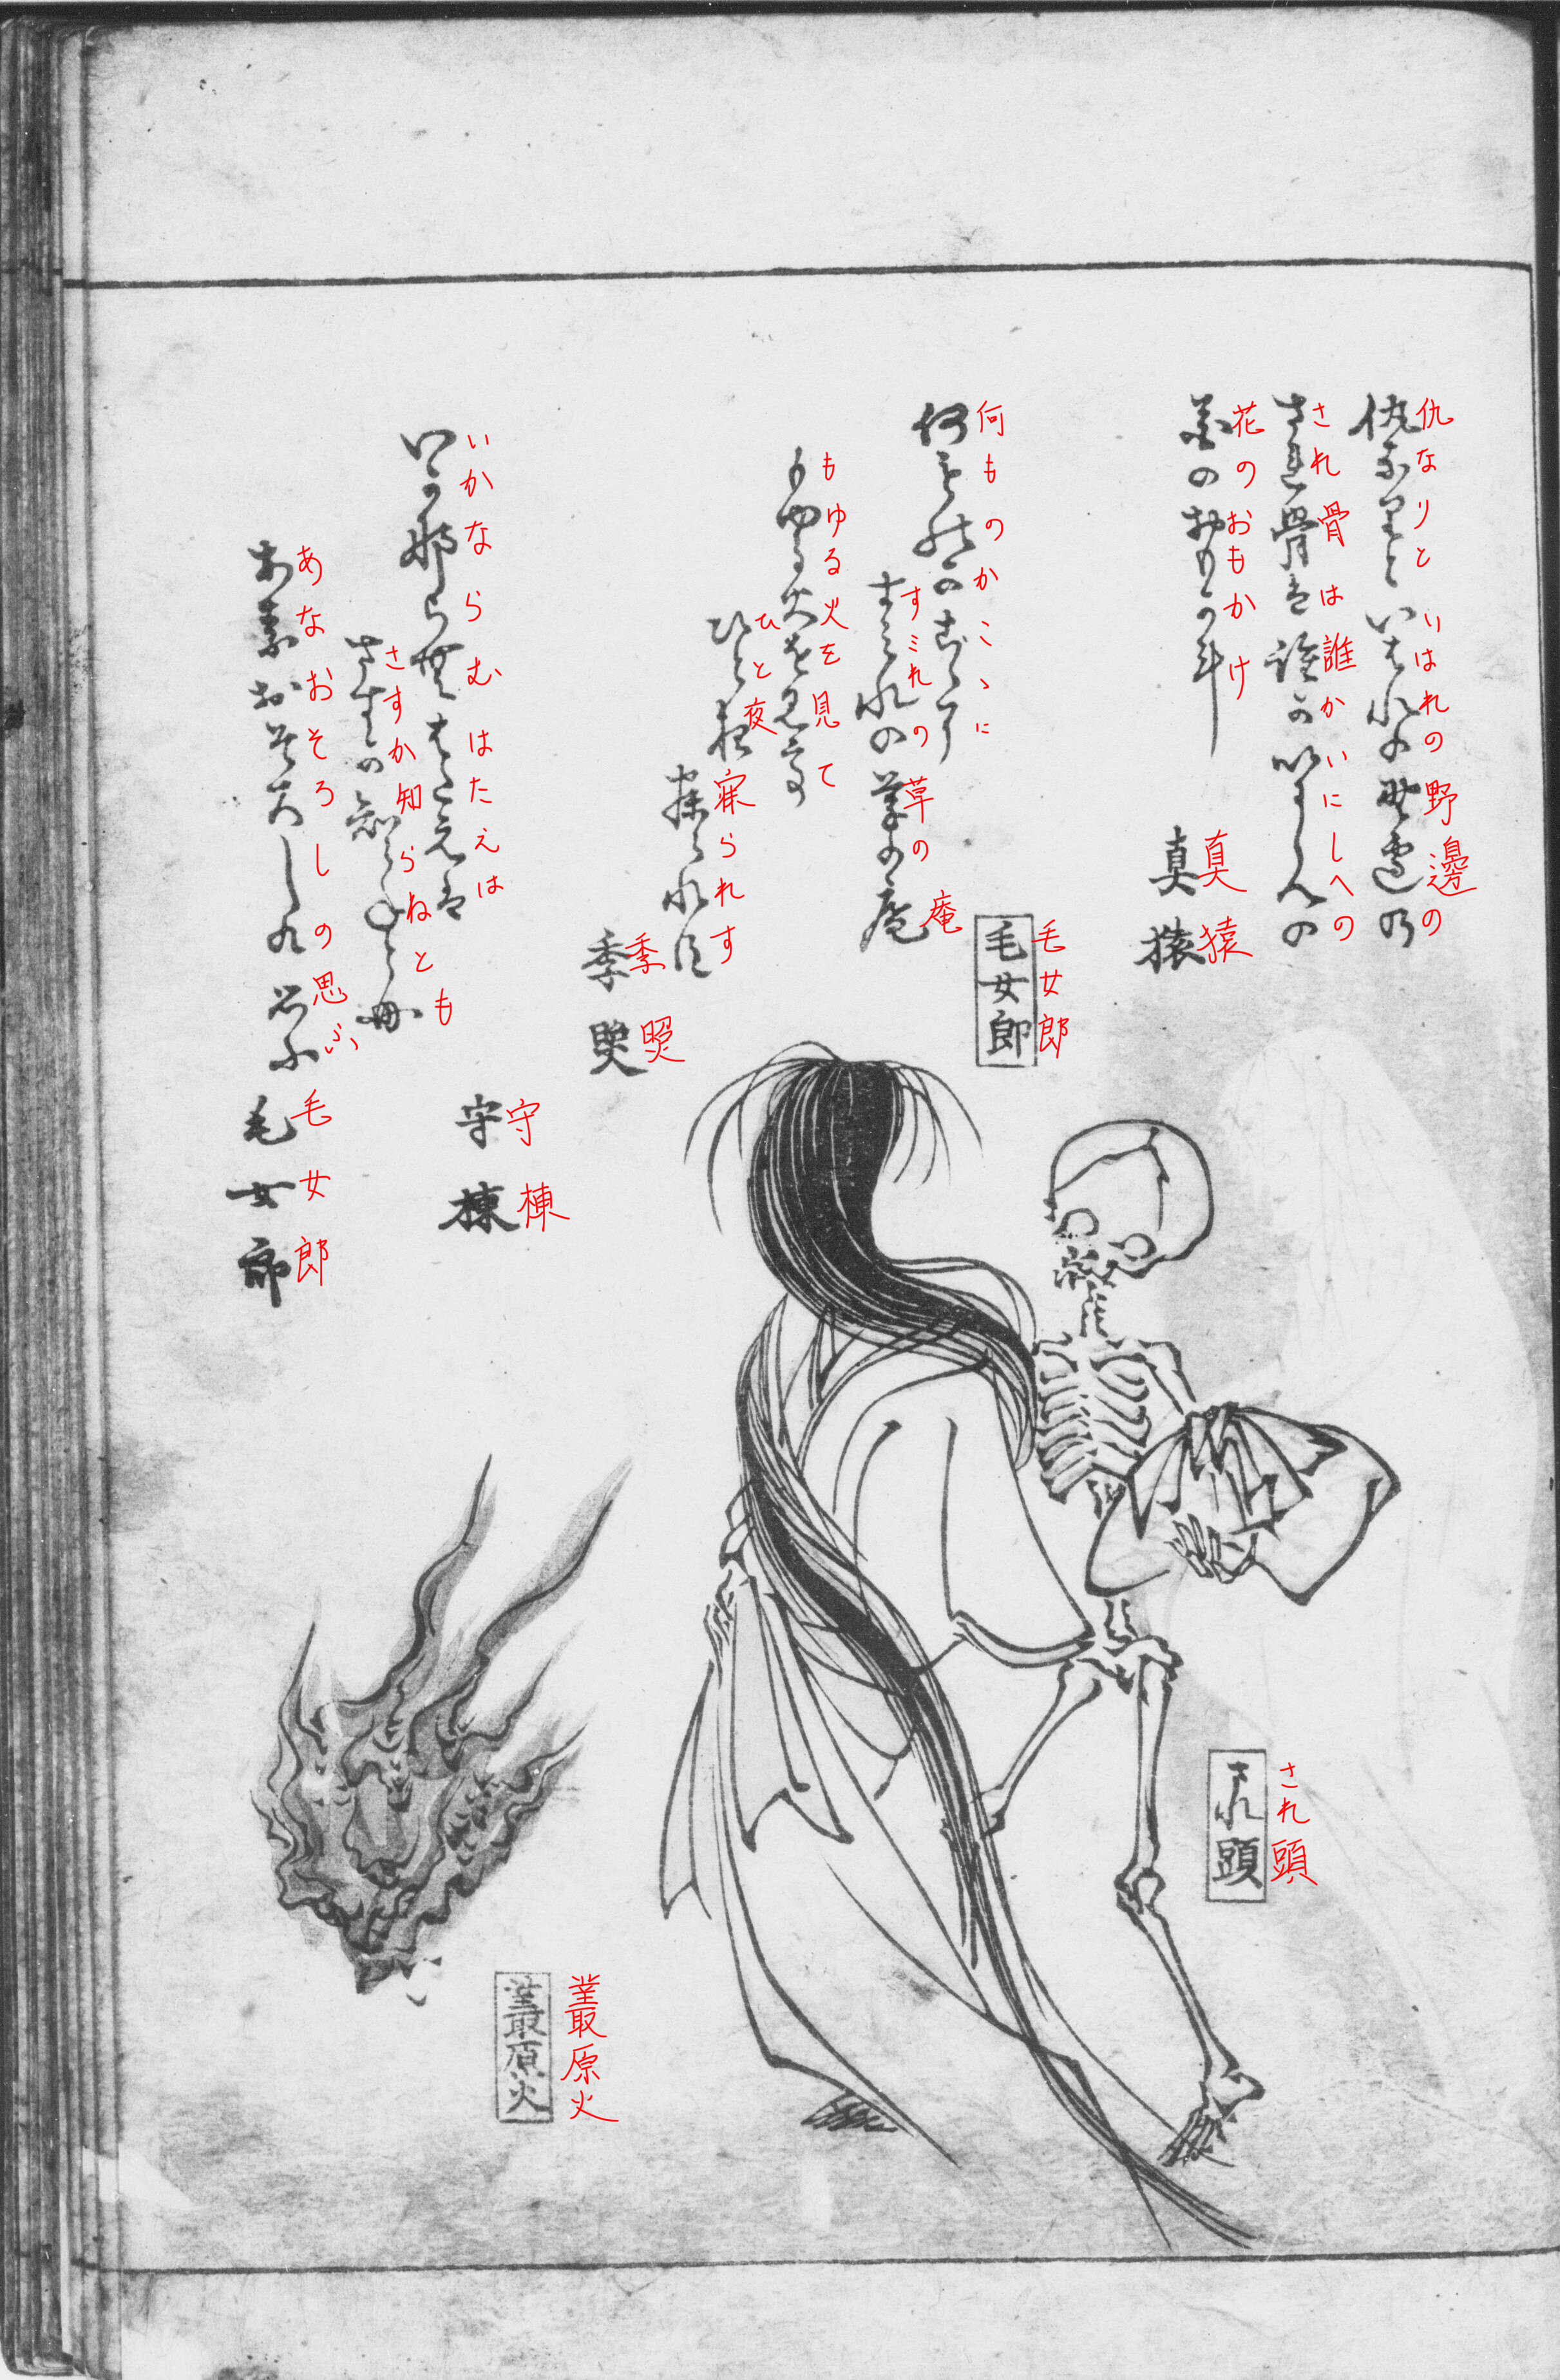 仇なりといはれの野邊の
され骨は誰かいにしへの
花のおもかけ
真猿
何ものかこゝに
すミれの草の庵
毛女郎
もゆる火を見て
ひと夜
寐られす
季
いかならむはたえは
さすか知らねとも
守棟
あなおそろしの思ふ
毛女郎
され頭
叢原火